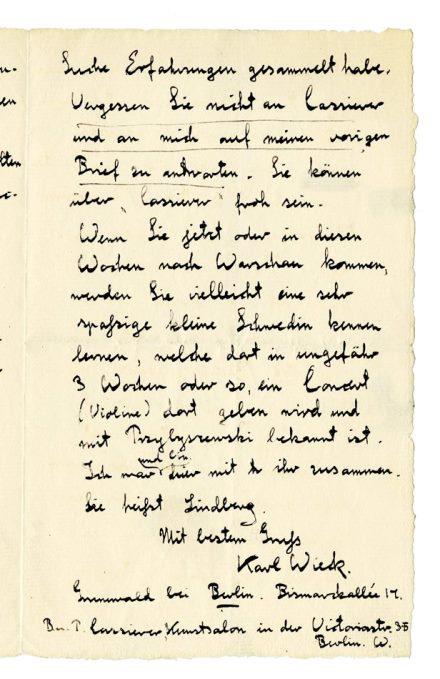 Erfahrungen gesammelt habe.
Vergessen Sie nicht an Cassierer
und an mich auf meinen vorigen
Brief zu antworten. Sie können
über „Cassierer“ froh sein.
Wenn Sie jetzt oder in diesen
Wochen nach Warschau kommen,
werden Sie vielleicht eine sehr
spaßige kleine Schwedin kennen
lernen, welche dort in ungefähr
3 Wochen oder so, ein Concert
(Violine) dort geben wird und
mit Przybyszewski bekannt ist.
und
Ich war hier mit ihr zusammen.
Sie heißt Lindberg.
Mit bestem Gruß
Karl Wieck.
Grunewald bei Berlin. Bismarckallée 17.
P. Cassierer Kunstsalon in der Victoriastr. 35
Berlin. W.